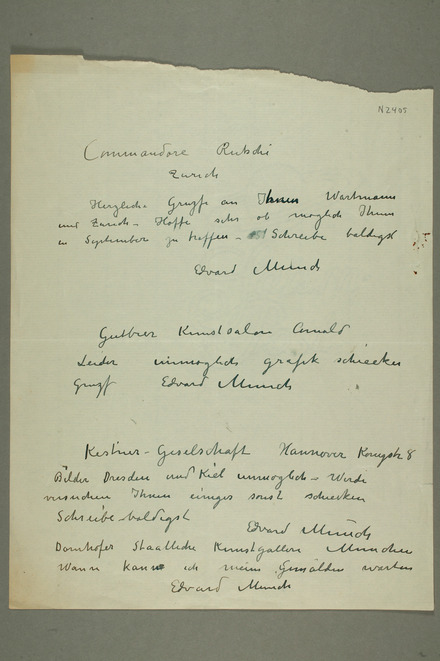 N 2405
Commandore Rütschi
Zürich
Herzliche Grüsse an Ihnen Wartmann
und Zürich – Hoffe sehr ob möglich Ihnen
in September zu treffen – Schreibe baldigst
Edvard Munch
Gutbier Kunstsalon Arnold
Leider unmöglich grafik schicken
Gruss Edvard Munch
Kestner-Geselschaft Hannover Königstr 8
Bilder Dresden und Kiel unmöglich – Werde
versuchen Ihnen einiges sonst schicken
Schreibe baldigst
Edvard Munch
Dornhofer Staatliche Kunstgalleri München
Wann kann ich meine Gemälden warten
Edvard Munch